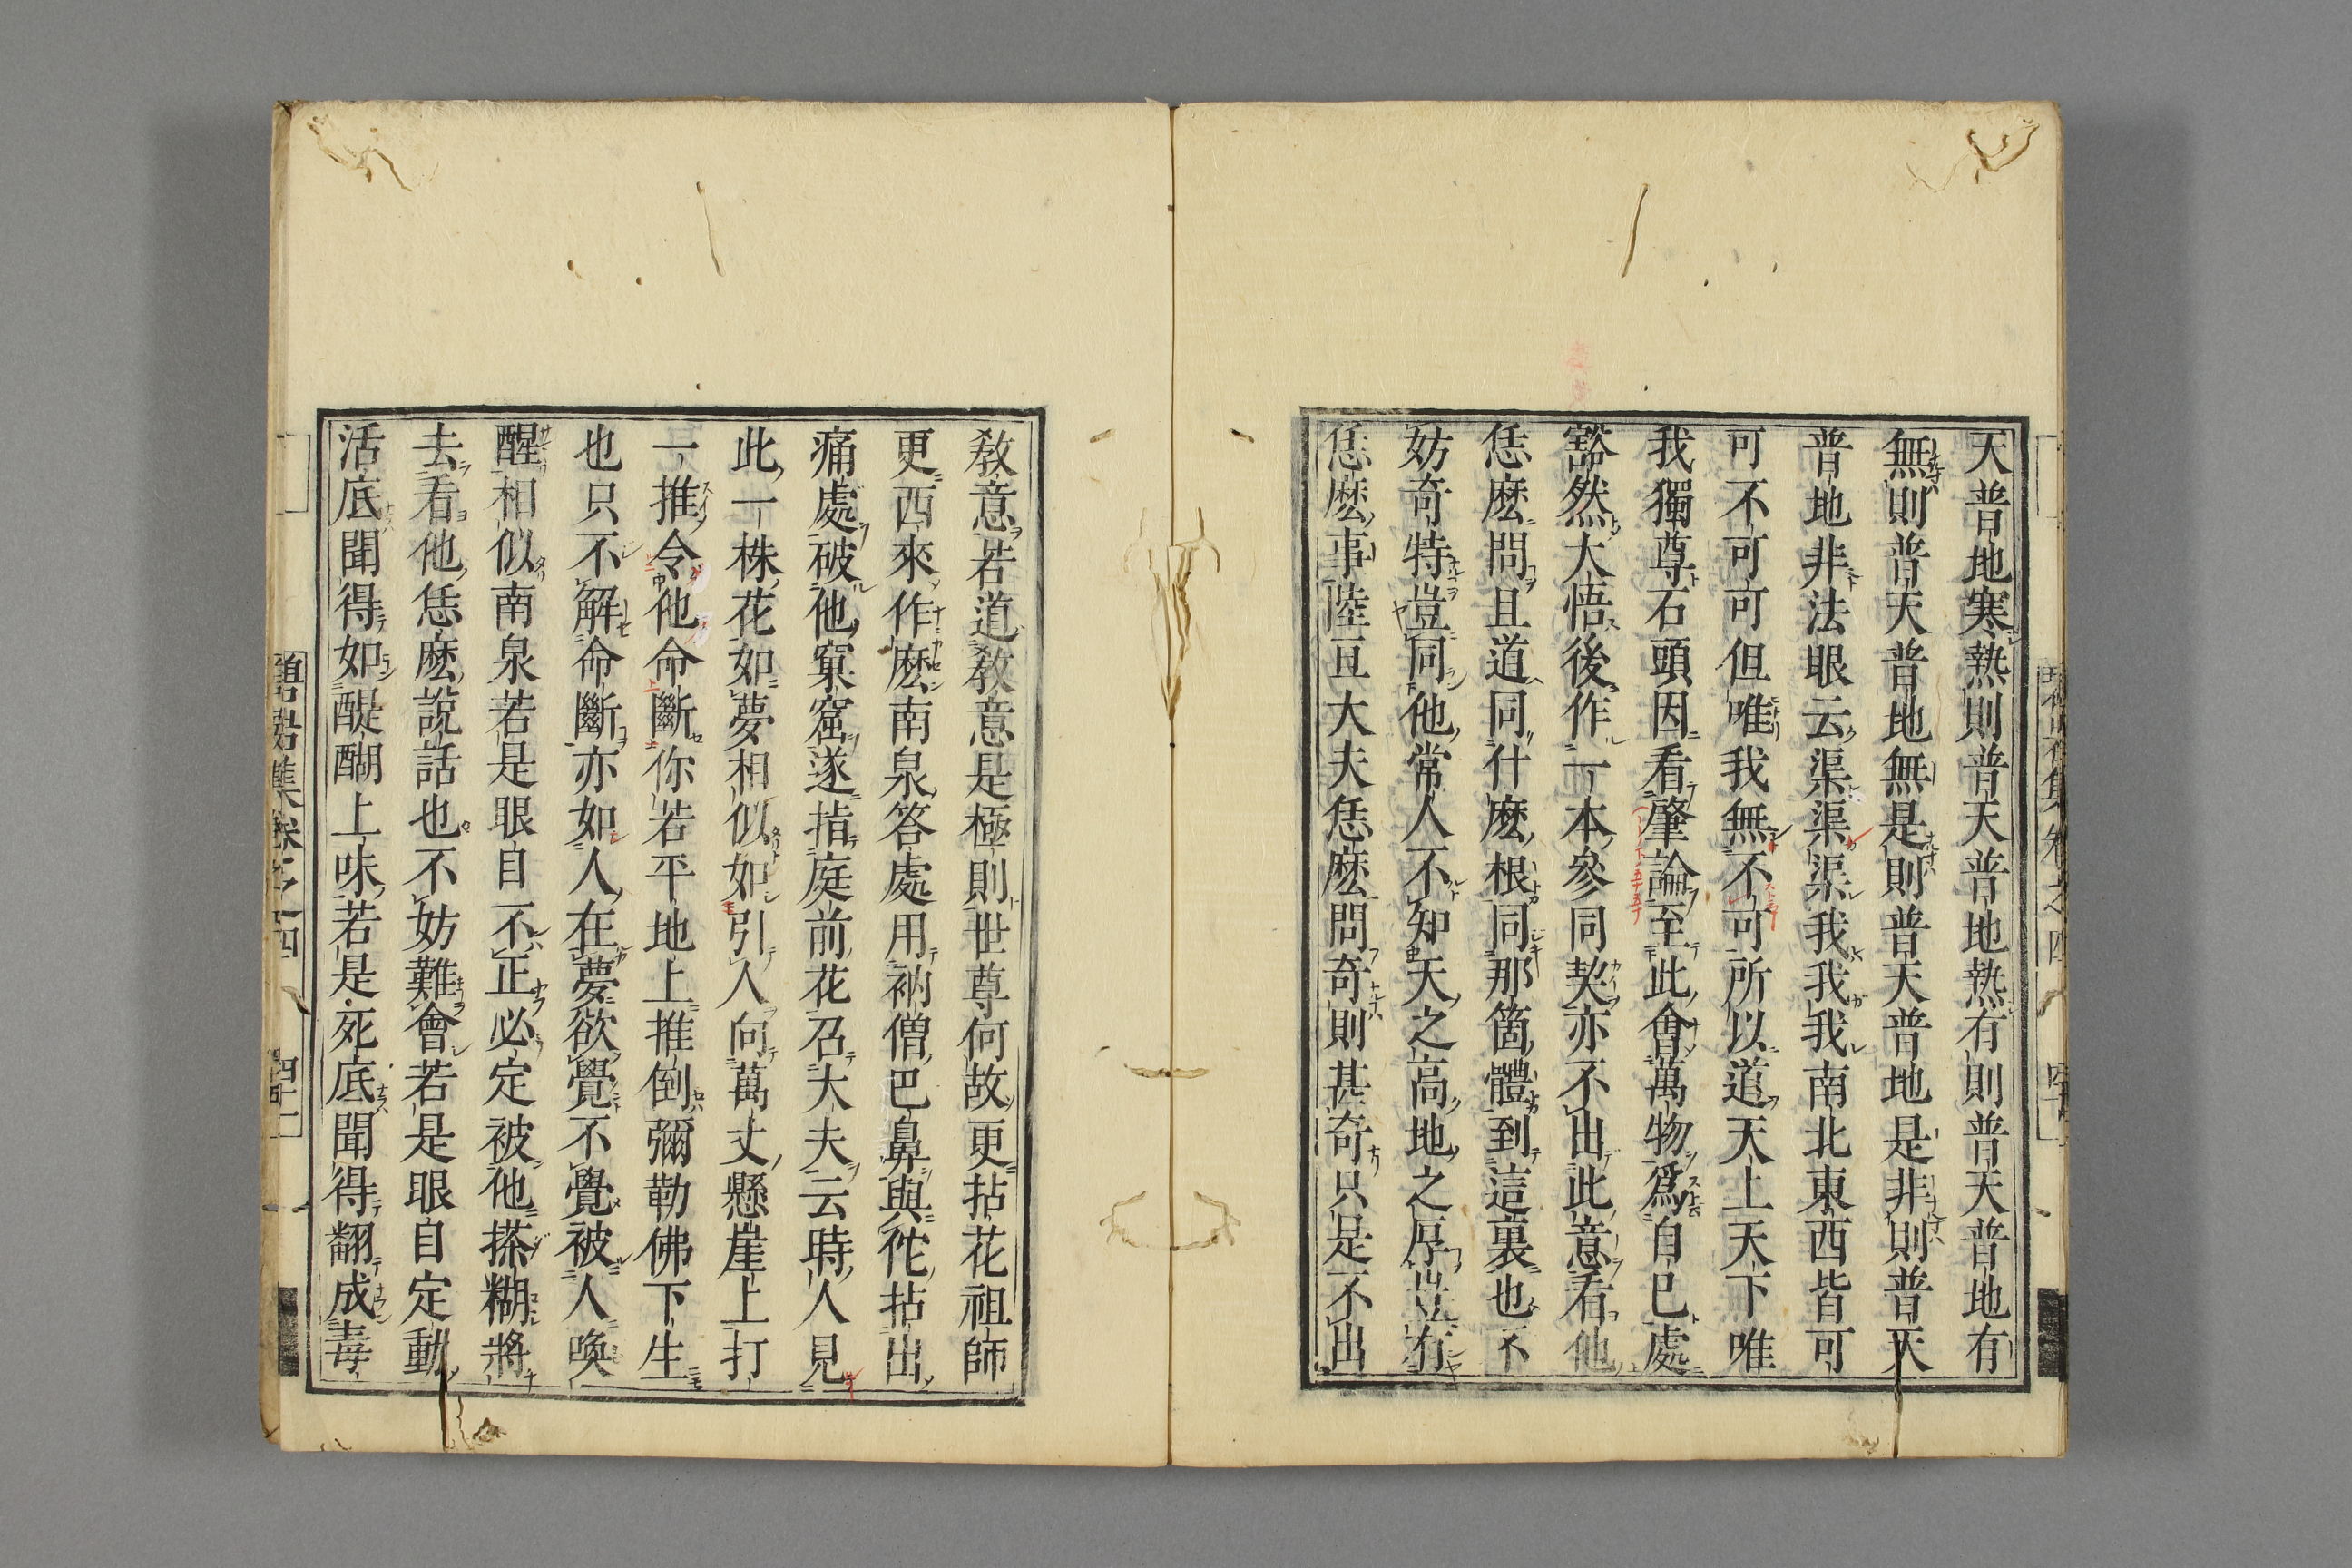 天普地寒熱則普天普地熱有則普天普地有
無則普天普地無是則普天普地是非則普天
普地非法眼云渠渠渠我我我南北東西皆可
可不可可但唯我無不可所以道天上天下唯
我獨尊石頭因看肇論至此會萬物爲自己處
豁然大悟後作一本參同契亦不出此意看他
恁麽問且道同什麽根同那箇體到這裏也不
妨奇特豈同他常人不知天之高地之厚豈有
恁麽事陸亘大夫恁麽問奇則甚奇只是不出
教意若道教意是極則世尊何故更拈花祖師
更西來作麽南泉答處用衲僧巴鼻與佗拈出
痛處破他窠窟遂指庭前花召大夫云時人見
此一株花如夢相似如引人向萬丈懸崖上打
一推令他命斷你若平地上推倒彌勒佛下生
也只不解命斷亦如人在夢欲覺不覺被人喚
醒相似南泉若是眼目不正必定被他搽糊將
去看他恁麽說話也不妨難會若是眼目定動
活底聞得如醍醐上味若是死底聞得翻成毒